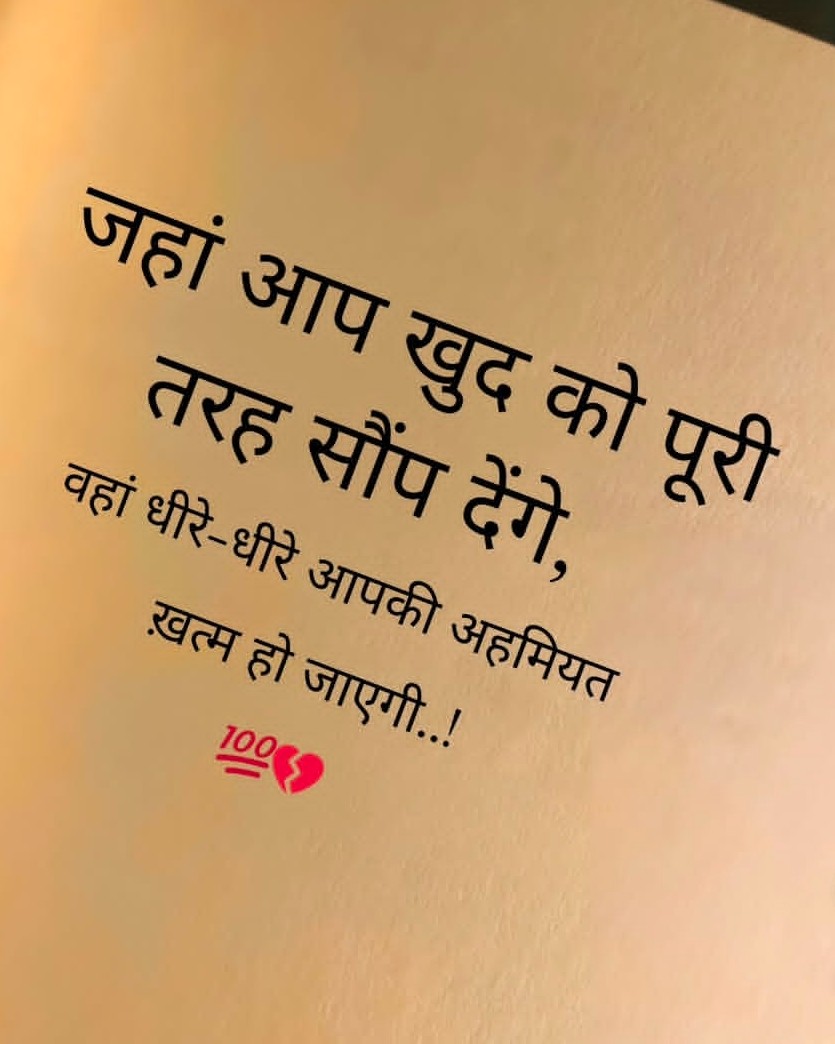 जहां आप खुद को पूरी
तरह सौंप देंगे,
वहां धीरे-धीरे आपकी अहमियत
ख़त्म हो जाएगी..!
💯💔